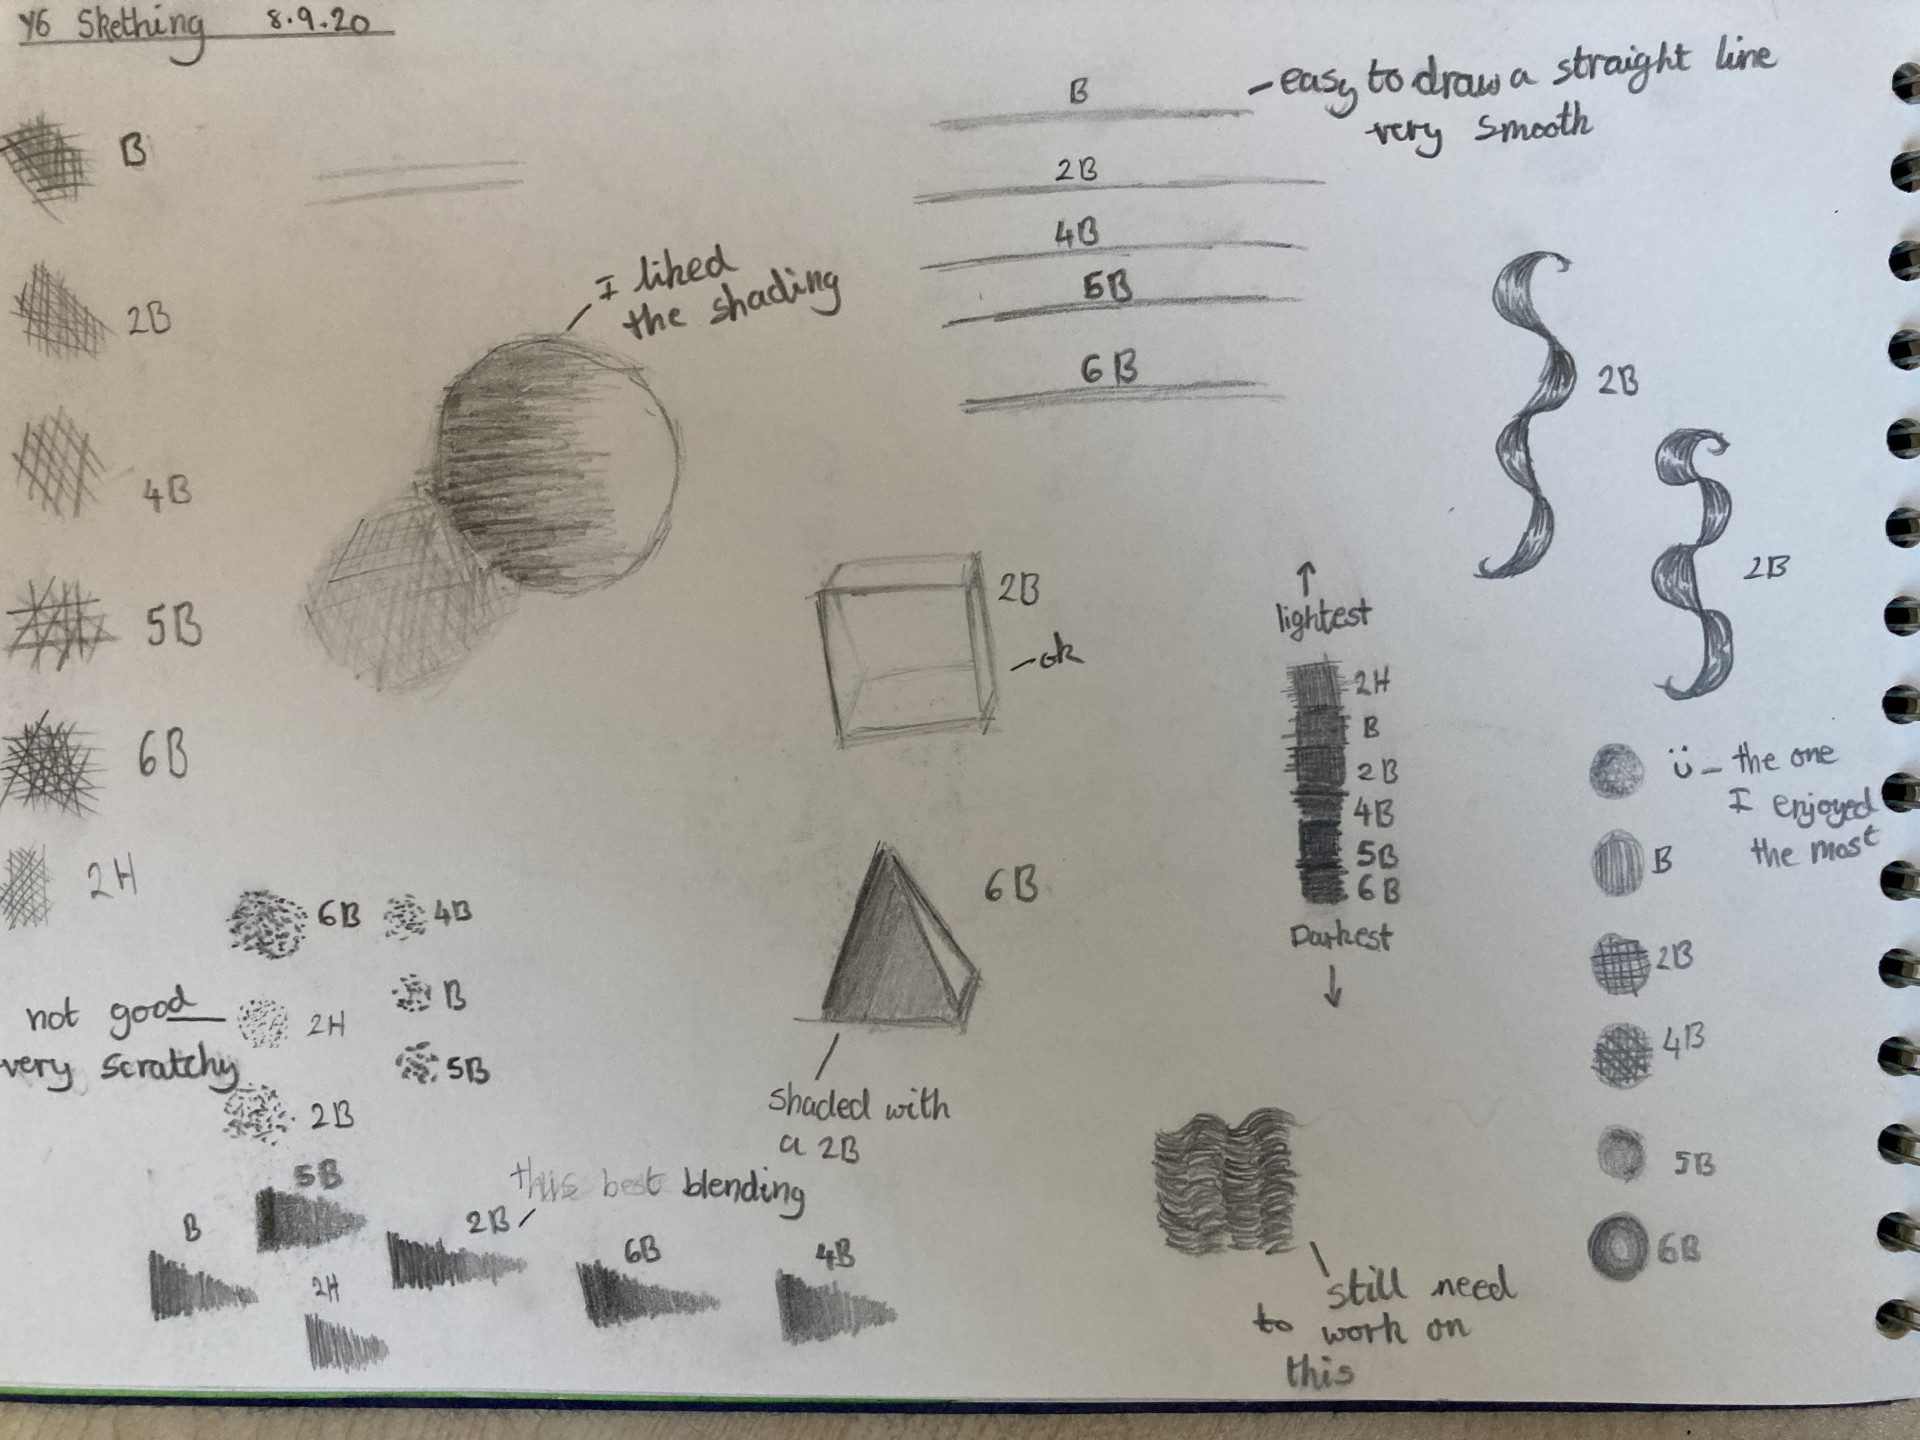 Y6 Skething 8.9.20
B
2B
4B
5B
6B
2H
I liked
the shading
B
- easy to draw a straight line
very smooth
2B
4B
5B
6B
2B
2B
2B
- ok
6B
shaded with
a 2B
↑
lightest
2H
B
2B
4B
5B
6B
Darkest
↓
- the one
I enjoyed
the most
B
2B
4B
5B
6B
6B
4B
not good
very scratchy
2H
B
5B
2B
this best blending
B
5B
2H
2B
6B
4B
still need
to work on
this